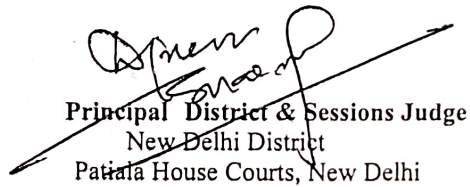 Principal District & Sessions Judge
New Delhi District
Patiala House Courts, New Delhi